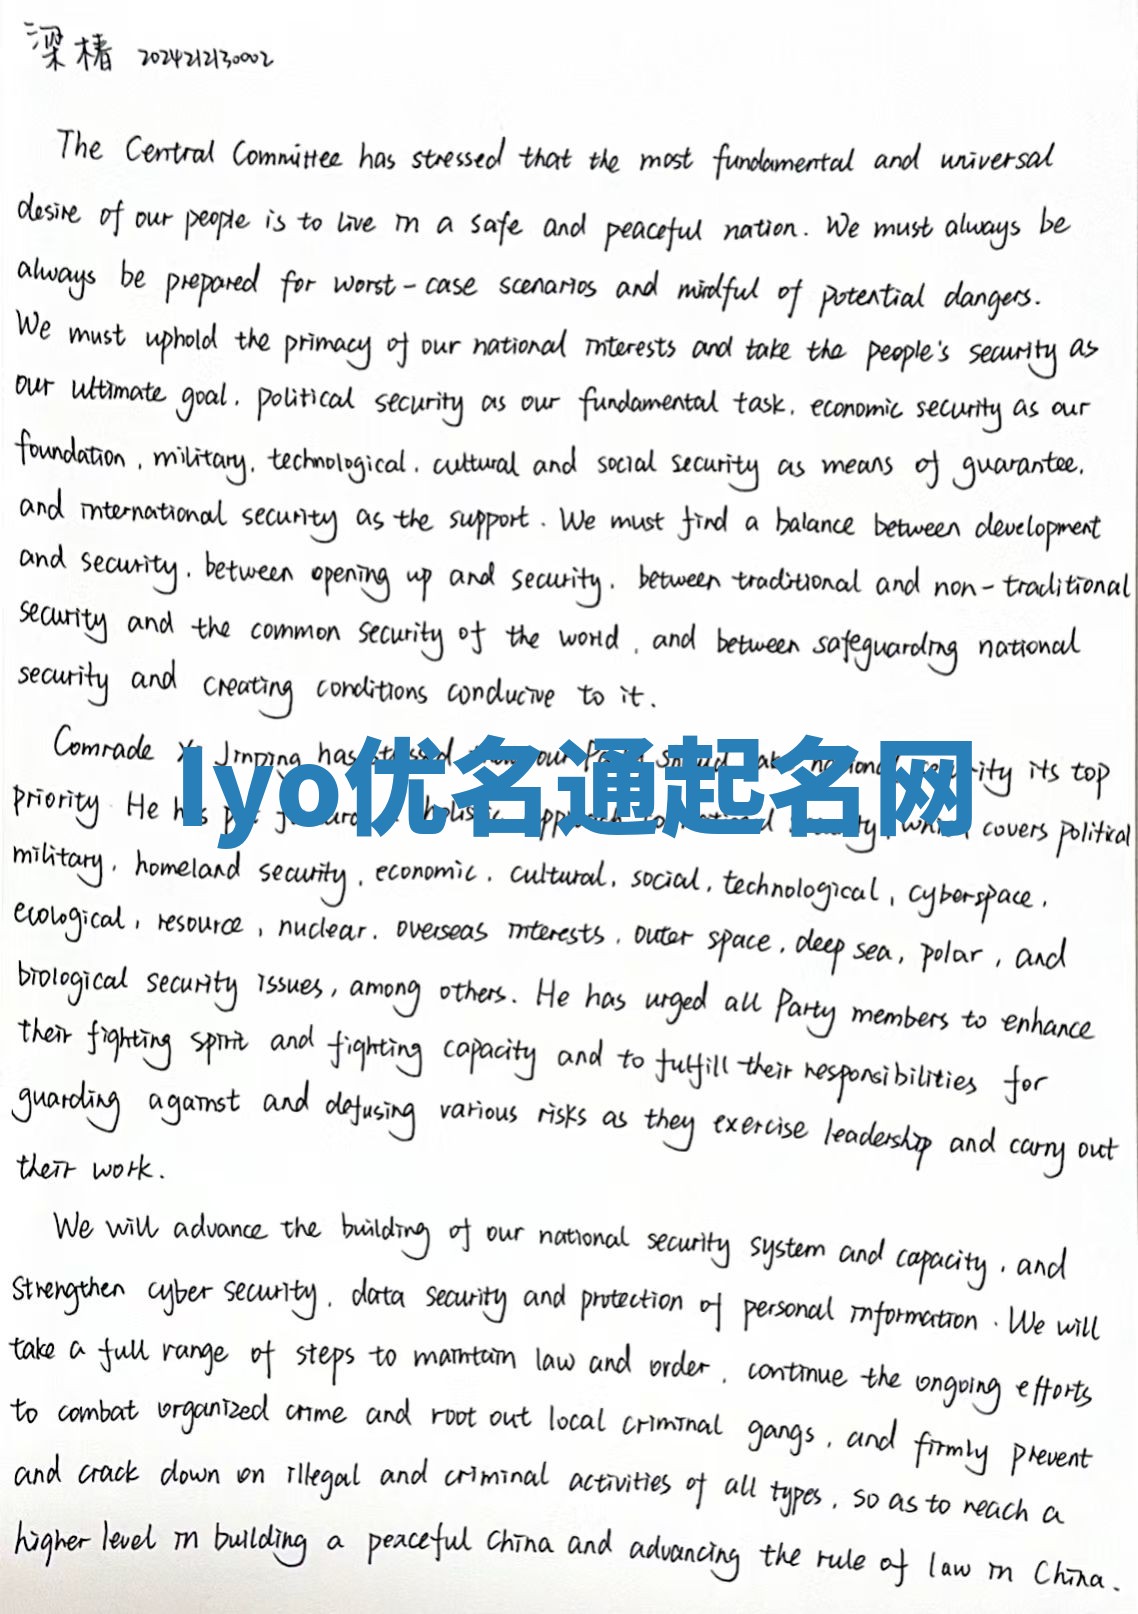 梁椿 2024212130002
The Central Committee has stressed that the most fundamental and universal
desire of our people is to live in a safe and peaceful nation. We must always be
always be prepared for worst-case scenarios and mindful of potential dangers.
We must uphold the primacy of our national interests and take the people's security as
our ultimate goal, political security as our fundamental task, economic security as our
foundation, military, technological, cultural and social security as means of guarantee,
and international security as the support. We must find a balance between development
and security, between opening up and security, between traditional and non-traditional
security and the common security of the world, and between safeguarding national
security and creating conditions conducive to it.
Comrade Jinping has our its top
lyo优名通起名网
priority. He has covers political
military, homeland security, economic, cultural, social, technological, cyberspace,
ecological, resource, nuclear, overseas interests, outer space, deep sea, polar, and
biological security issues, among others. He has urged all Party members to enhance
their fighting spirit and fighting capacity and to fulfill their responsibilities for
guarding against and defusing various risks as they exercise leadership and carry out
their work.
We will advance the building of our national security system and capacity, and
strengthen cyber security, data security and protection of personal information. We will
take a full range of steps to maintain law and order, continue the ongoing efforts
to combat organized crime and root out local criminal gangs, and firmly prevent
and crack down on illegal and criminal activities of all types, so as to reach a
higher level in building a peaceful China and advancing the rule of law in China.